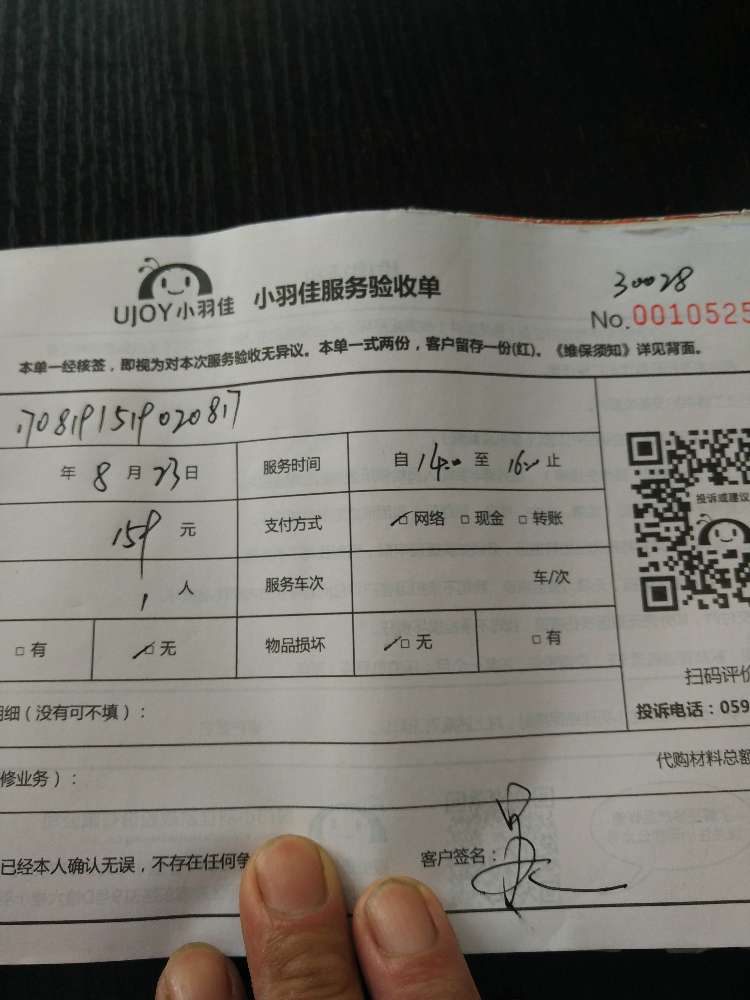 30028
UJOY小羽佳 小羽佳服务验收单
No.0010525
本单一经核签，即视为对本次服务验收无异议。本单一式两份，客户留存一份(红)。《维保须知》详见背面。
1708191519020817
年 8 月 23 日 服务时间 自 14:00 至 16:00 止
159 元 支付方式 网络 现金 转账
投诉或建议
1 人 服务车次 车/次
有 无 物品损坏 无 有
扫码评价
明细（没有可不填）：
投诉电话：059
修业务）：
代购材料总额
已经本人确认无误，不存在任何争
客户签名：